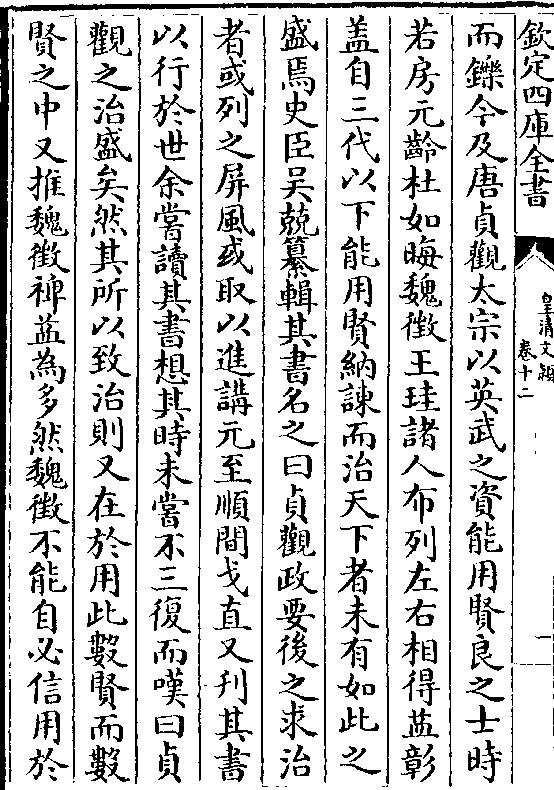 欽定四庫全書
皇清文穎
卷十二
一
而鑠今及唐貞觀太宗以英武之資能用賢良之士時
若房元齡杜如晦魏徵王珪諸人布列左右相得益彰
盖自三代以下能用賢納諫而治天下者未有如此之
盛焉史臣吳兢纂輯其書名之曰貞觀政要後之求治
者或列之屏風或取以進講元至順間戈直又刋其書
以行於世余嘗讀其書想其時未嘗不三復而嘆曰貞
觀之治盛矣然其所以致治則又在於用此數賢而數
賢之中又推魏徵裨益為多然魏徵不能自必信用於